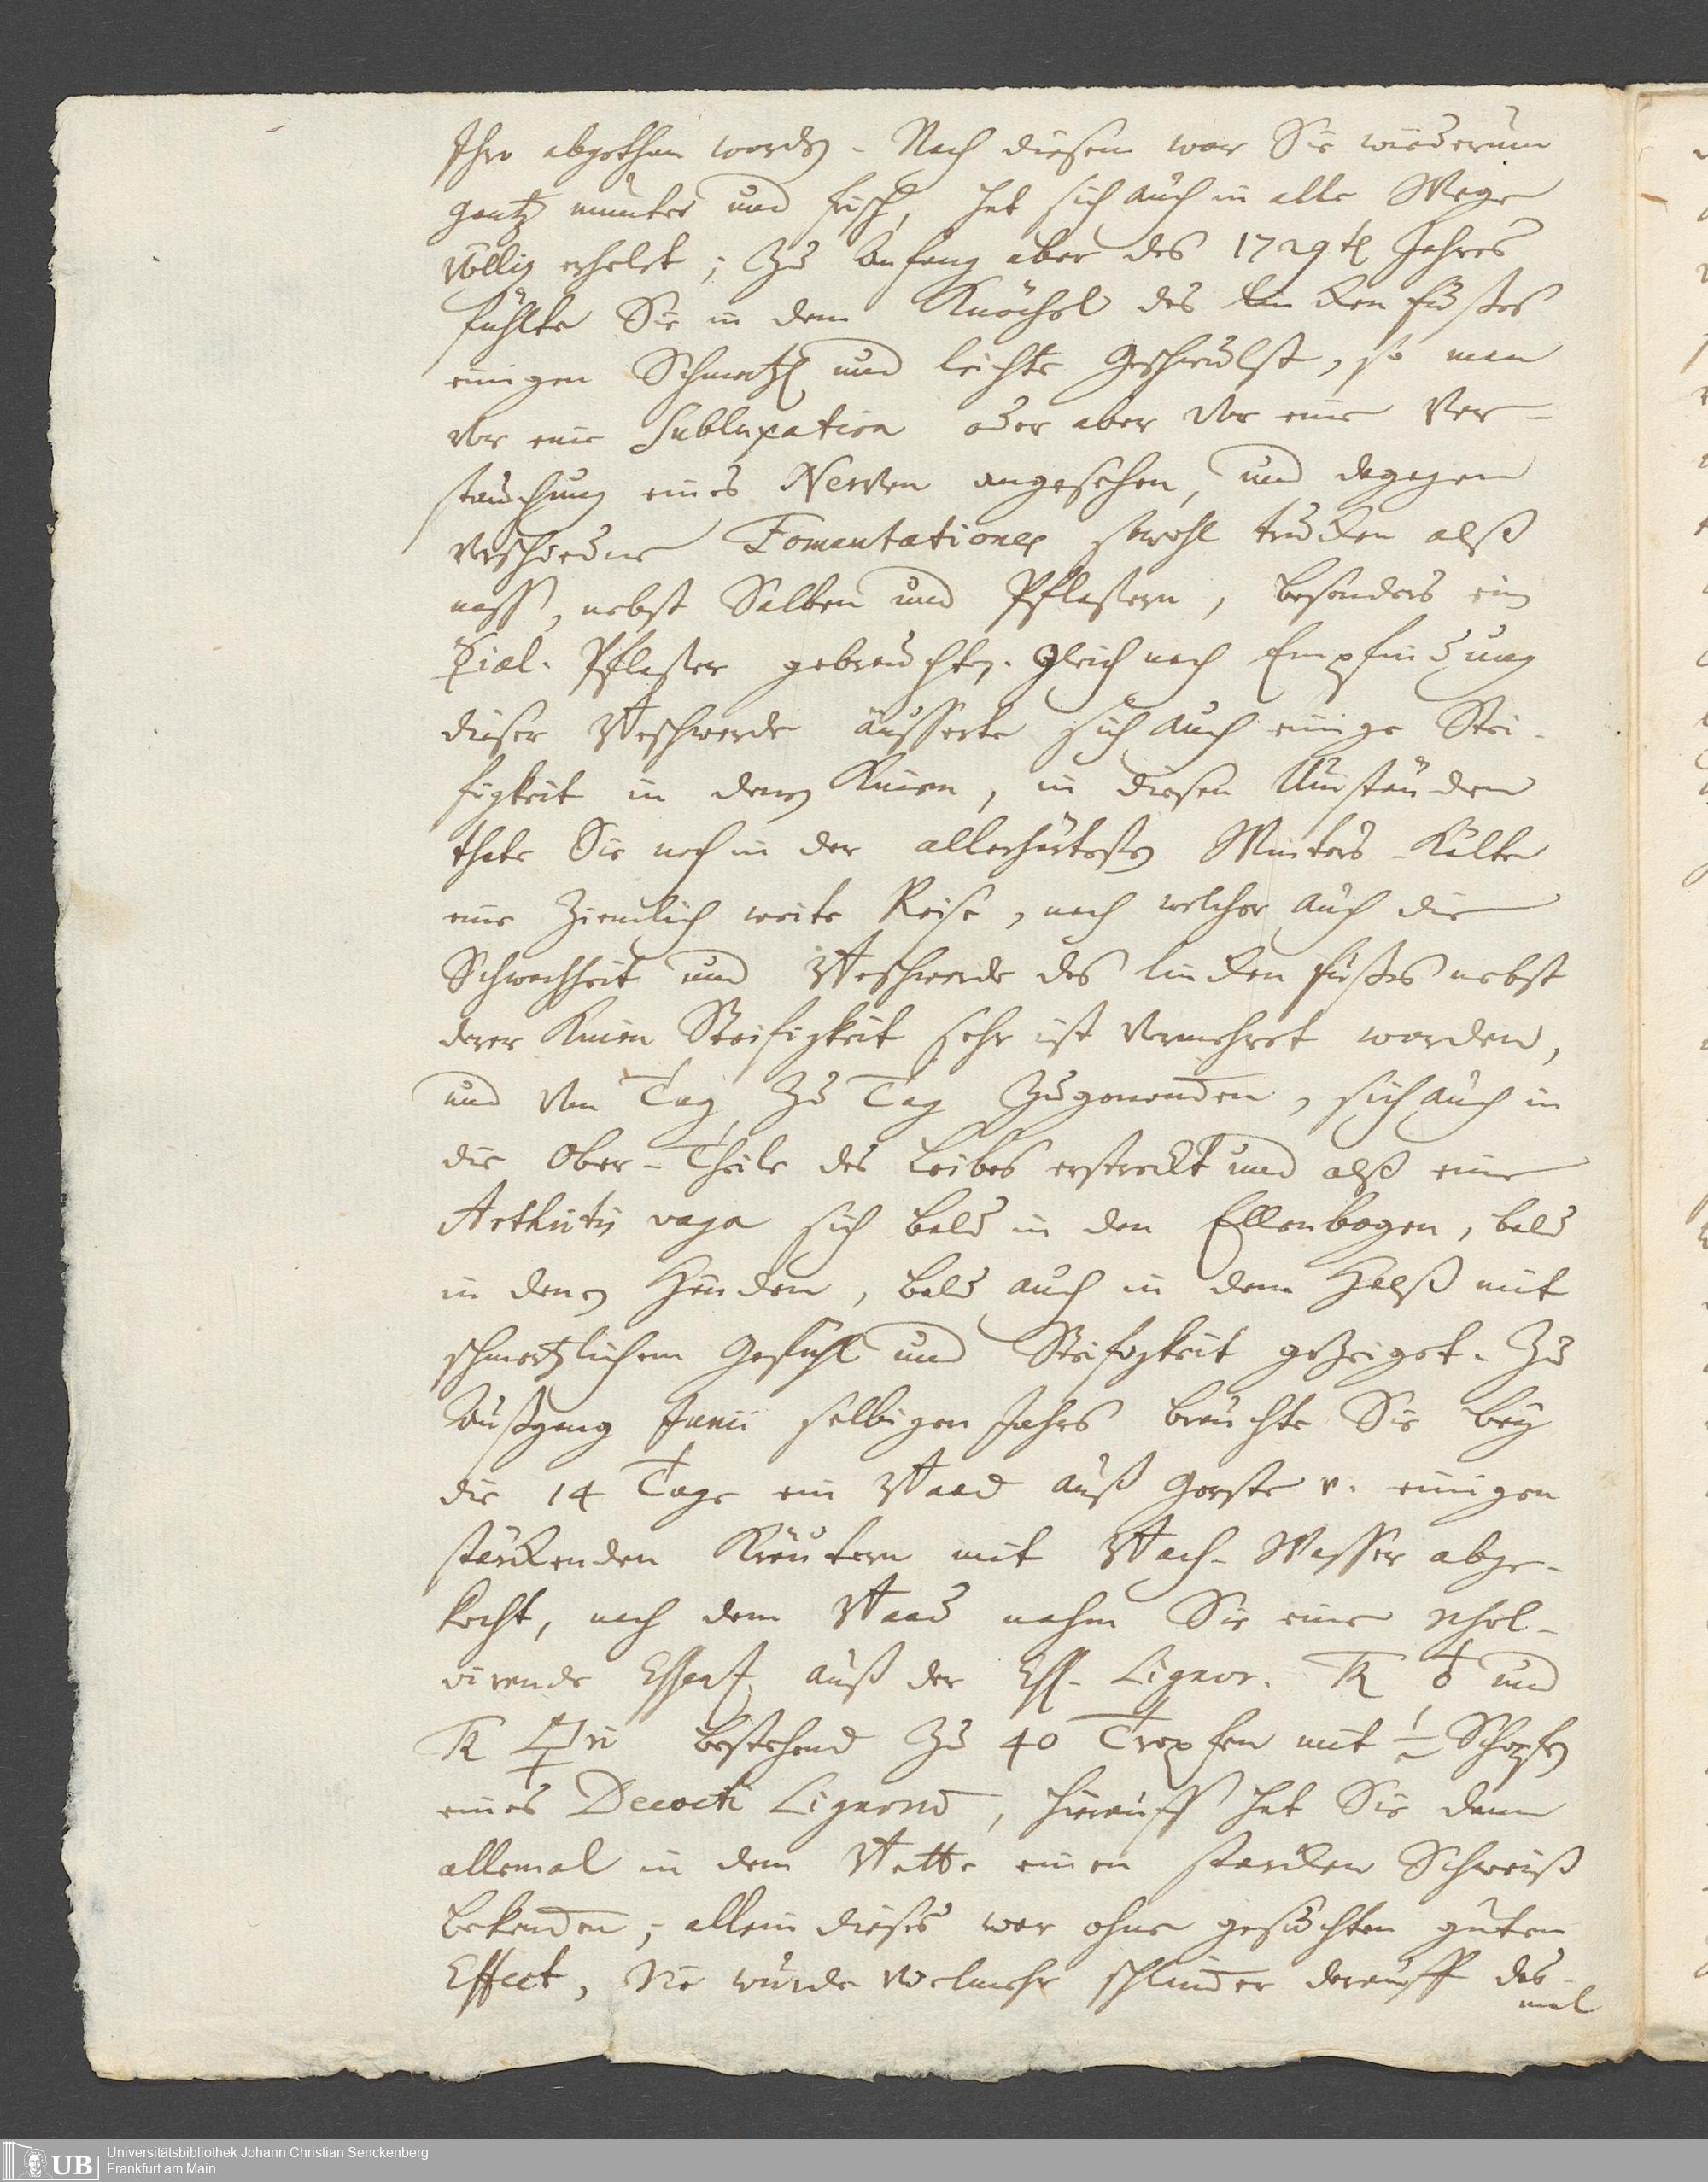 Ihro abgethan worden. Nach diesem war Sie wiederum
gantz munter und frisch, hat sich auch in alle Wege
völlig erholet; Zu Anfang aber des 1729ten Jahres
fühlte Sie in dem Knöchel des lincken fußes
einigen Schmertzen und leichte Geschwulst, so man
vor eine Subluxation oder aber vor eine Ver-
stauchung eines Nerven angesehen, und dagegen
verschiedene Fomentationes sowohl trucken alß
naß, nebst Salben und Pflastern, besonders ein
☿ial. Pflaster gebrauchten. Gleich nach Empfindung
dieser Beschwerde äusserte sich auch einige Stei-
figkeit in denen Knien, in diesen Umständen
thate Sie noch in der allerhärtesten Winters-Kälte
eine Ziemlich weite Reise, nach welcher auch die
Schwachheit und Beschwerde des lincken fußes nebst
derer Knien Steifigkeit sehr ist vermehret worden,
und von Tag zu Tag zugenommen, sich auch in
die Ober-Theile des Leibes erstreckt und alß eine
Arthritis vaga sich bald in den Ellenbogen, bald
in denen Händen, bald auch in dem Halß mit
schmertzlichem Gefühl und Steifigkeit gezeiget. Zu
Außgang Junii selbigen Jahrs brauchte Sie bey
die 14 Tage ein Baad auß Gerste u. einigen
stärckenden Kräutern mit Bach-Wasser abge-
kocht, nach dem Baad nahm Sie eine resol-
virende Essenz auß der Ess. Lignor. TR ♁ und
TR 🜿ri bestehend zu 40 Tropfen mit ½ Schopfen
eines Decocti Lignorum, hierauff hat Sie dann
allemal in dem Bette einen starcken Schweiß
bekommen; allein dieses war ohne gesuchten guten
Effect, Sie wurde vielmehr schlimmer darauff das-
mal
Universitätsbibliothek Johann Christian Senckenberg
Frankfurt am Main
UB